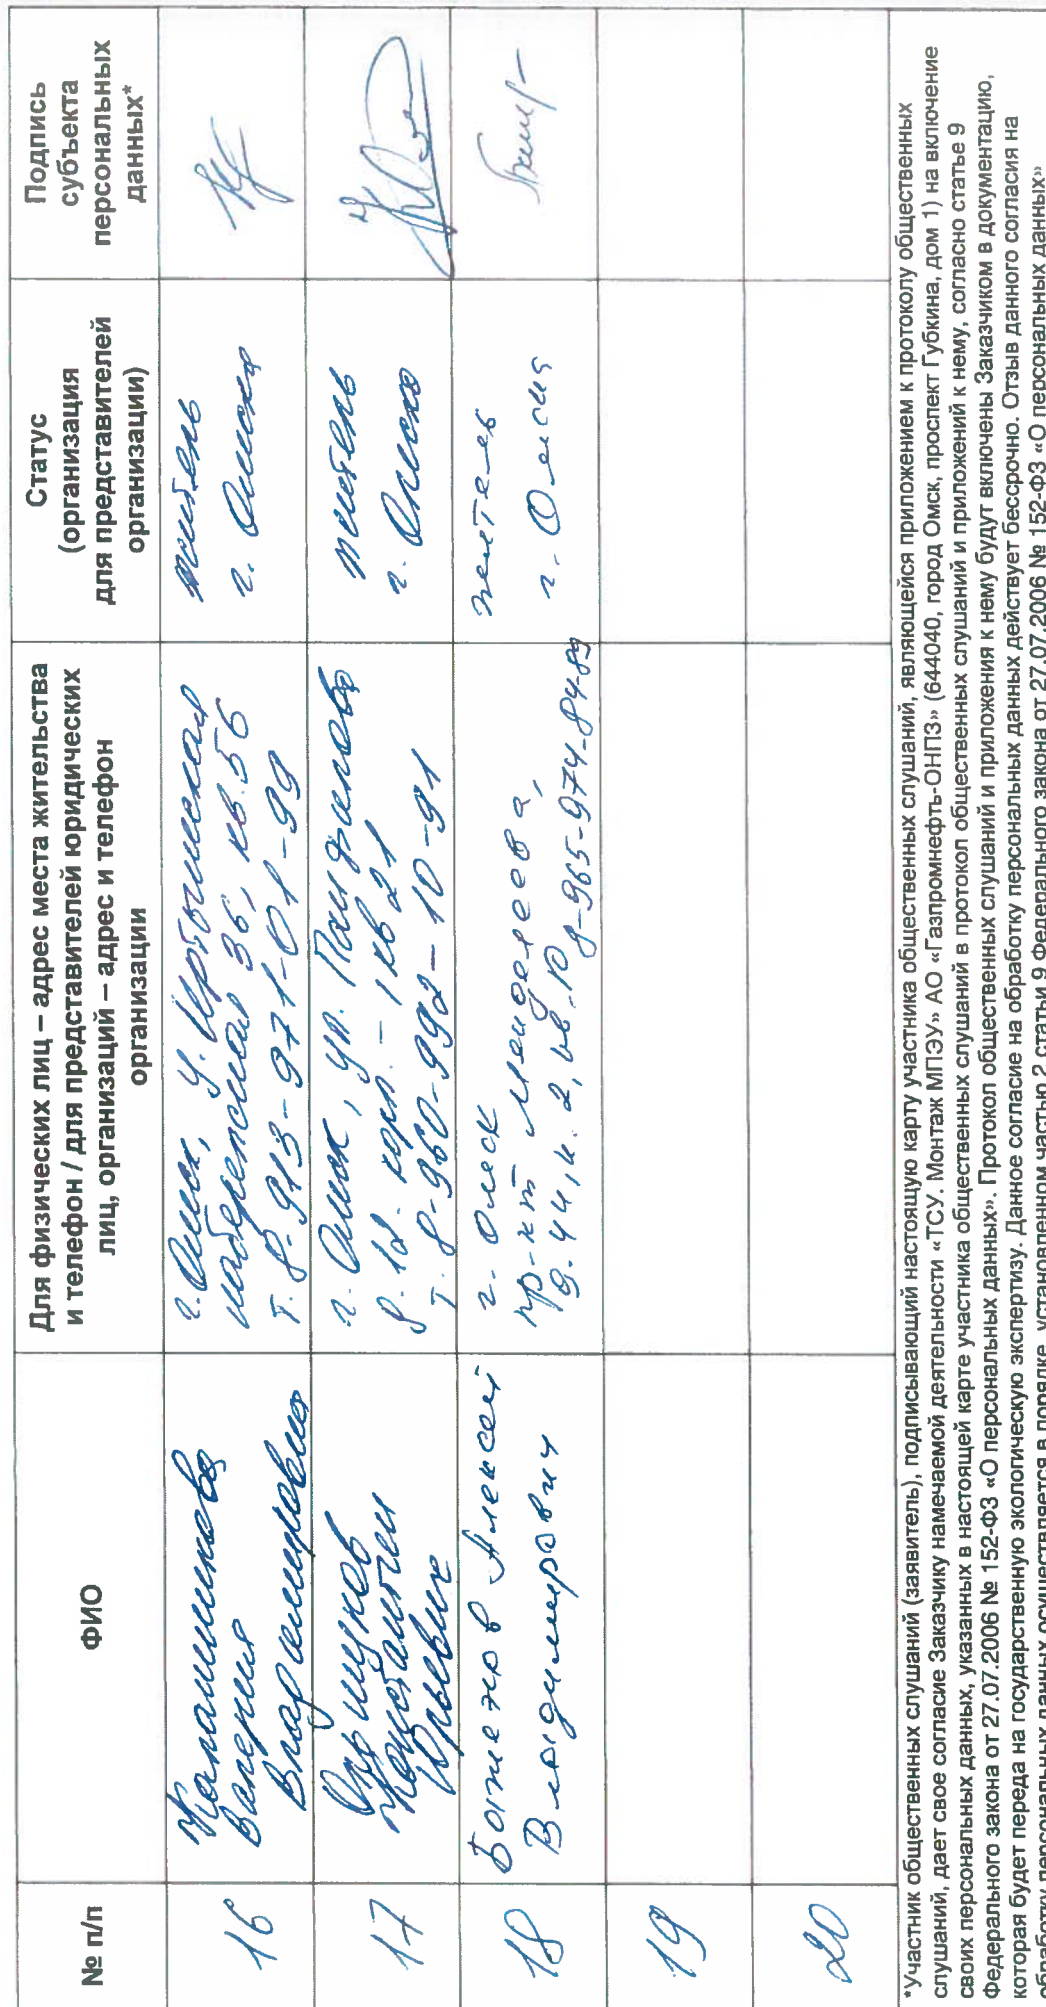 № п/п
ФИО
Для физических лиц – адрес места жительства
и телефон / для представителей юридических
лиц, организаций – адрес и телефон
организации
Статус
(организация
для представителей
организации)
Подпись
субъекта
персональных
данных*
16
Калашникова
Валерия
Владимировна
г. Омск, у. Иртышская
набережная 36, кв. 56
т. 8-913-971-01-99
житель
г. Омска
17
Константин
Юрьевич
г. Омск, ул. Панфилова
д. 12. корп. - 1 кв 21
т. 8-960-992-10-91
житель
г. Омска
18
Боженов Алексей
Владимирович
г. Омск
пр-кт Менделеева,
д. 44, к. 2, кв. 10
8-965-974-84-89
житель
г. Омска
19
20
*Участник общественных слушаний (заявитель), подписывающий настоящую карту участника общественных слушаний, являющейся приложением к протоколу общественных
слушаний, дает свое согласие Заказчику намечаемой деятельности «ТСУ. Монтаж МПЭУ» АО «Газпромнефть-ОНПЗ» (644040, город Омск, проспект Губкина, дом 1) на включение
своих персональных данных, указанных в настоящей карте участника общественных слушаний в протокол общественных слушаний и приложений к нему, согласно статье 9
Федерального закона от 27.07.2006 № 152-ФЗ «О персональных данных». Протокол общественных слушаний и приложения к нему будут включены Заказчиком в документацию,
которая будет переда на государственную экологическую экспертизу. Данное согласие на обработку персональных данных действует бессрочно. Отзыв данного согласия на
обработку персональных данных осуществляется в порядке, установленном частью 2 статьи 9 Федерального закона от 27.07.2006 № 152-ФЗ «О персональных данных»